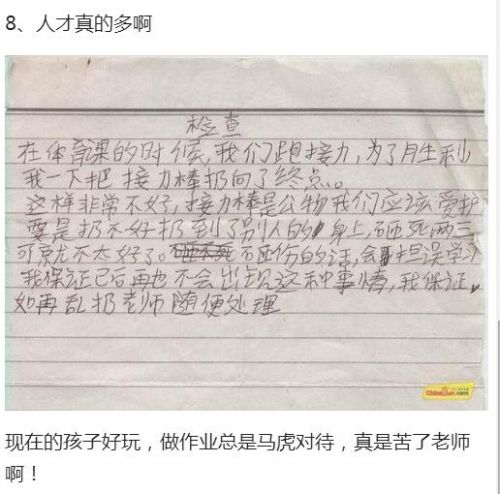 8、人才真的多啊
检查
在体育课的时候,我们跑接力,为了月生利
我一下把接力棒扔向了终点。。
这样非常不好,接力棒是公物我们应该受护
要是扔不好扔到了别人的身上,砸死两三
可就不太好了。砸伤的话,会担误学习
我保证已后再也不会出现这种事情,我保证
如再乱扔老师随便处理
现在的孩子好玩，做作业总是马虎对待，真是苦了老师
啊！